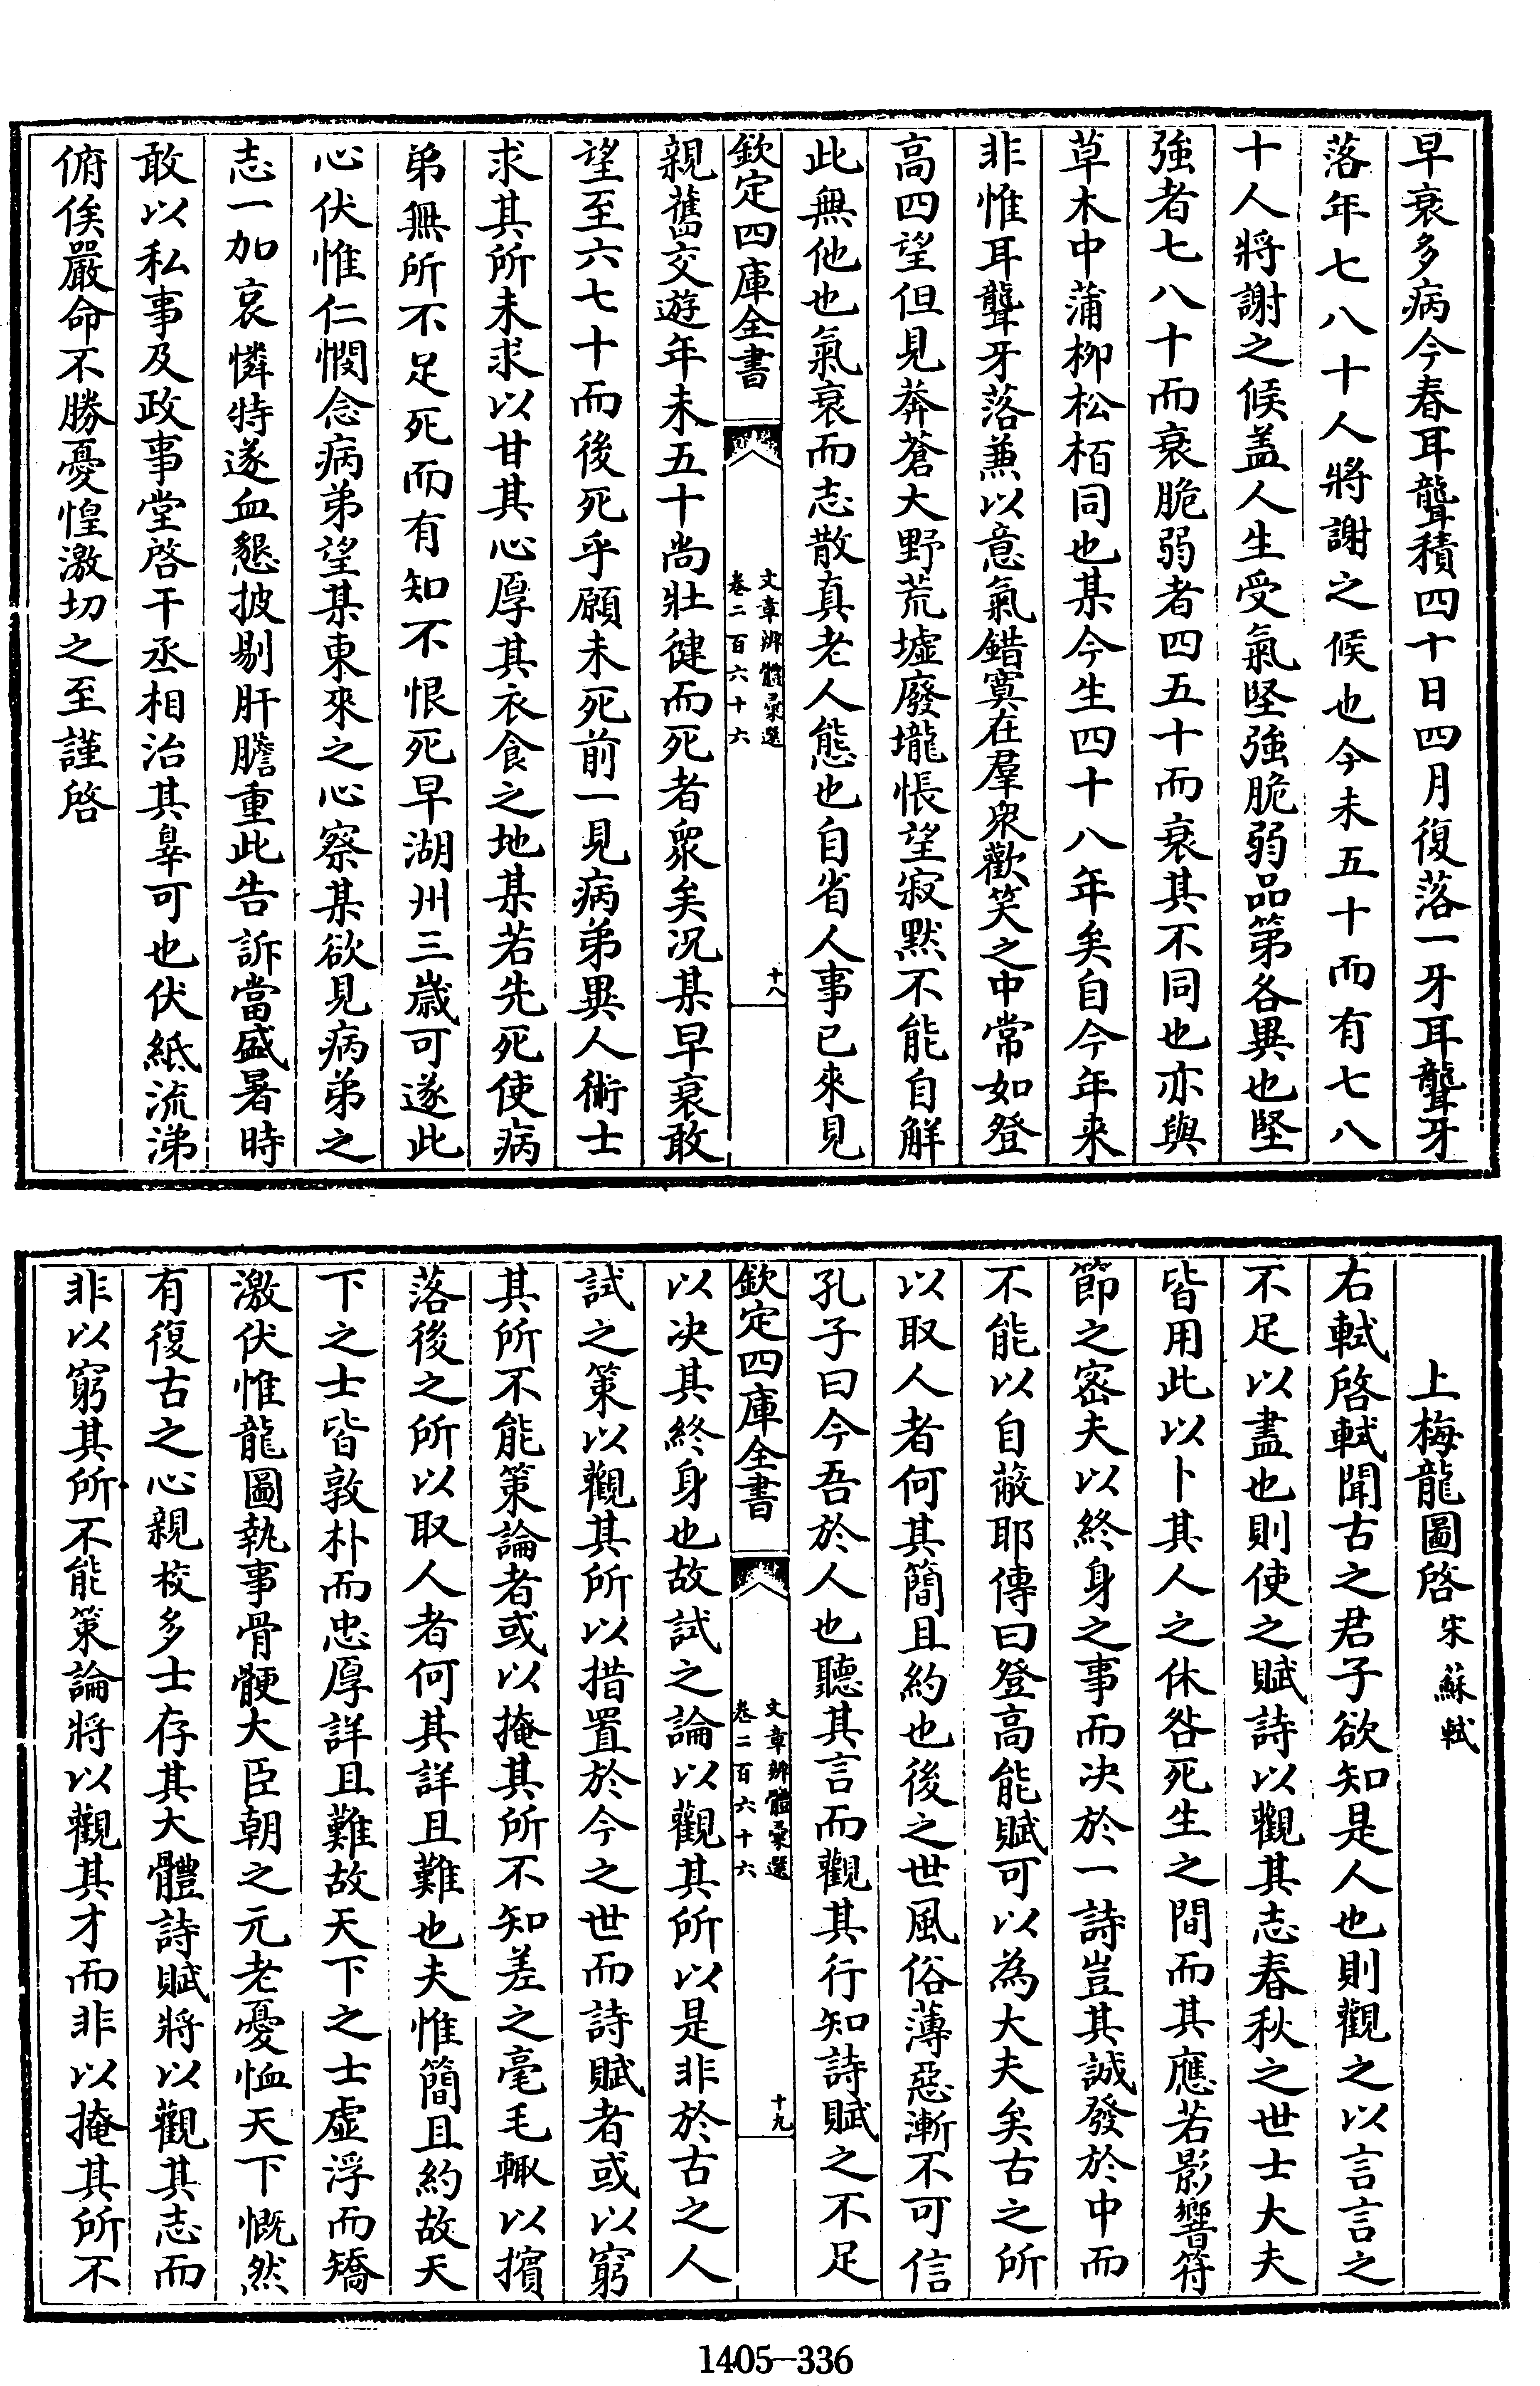 早衰多病今春耳聾積四十日四月復落一牙耳聾牙
落年七八十人將謝之候也今未五十而有七八
十人將謝之候盖人生受氣堅強脆弱品第各異也堅
強者七八十而衰脆弱者四五十而衰其不同也亦與
草木中蒲柳松栢同也某今生四十八年矣自今年來
非惟耳聾牙落兼以意氣錯寞在羣衆歡笑之中常如登
高四望但見莽蒼大野荒墟廢壠悵望寂默不能自解
此無他也氣衰而志散真老人態也自省人事已來見
欽定四庫全書
文章辨體彚選
卷二百六十六
十八
親舊交遊年未五十尚壯健而死者衆矣况某早衰敢
望至六七十而後死乎願未死前一見病弟異人術士
求其所未求以甘其心厚其衣食之地某若先死使病
弟無所不足死而有知不恨死早湖州三歲可遂此
心伏惟仁憫念病弟望某東來之心察某欲見病弟之
志一加哀憐特遂血懇披剔肝膽重此告訴當盛暑時
敢以私事及政事堂啓干丞相治其辠可也伏紙流涕
俯俟嚴命不勝憂惶激切之至謹啓
上梅龍圖啓 宋蘇軾
右軾啓軾聞古之君子欲知是人也則觀之以言言之
不足以盡也則使之賦詩以觀其志春秋之世士大夫
皆用此以卜其人之休咎死生之間而其應若影響符
節之密夫以終身之事而决於一詩豈其誠發於中而
不能以自蔽耶傳曰登高能賦可以為大夫矣古之所
以取人者何其簡且約也後之世風俗薄惡漸不可信
孔子曰今吾於人也聽其言而觀其行知詩賦之不足
欽定四庫全書
文章辨體彚選
卷二百六十六
十九
以决其終身也故試之論以觀其所以是非於古之人
試之策以觀其所以措置於今之世而詩賦者或以窮
其所不能策論者或以掩其所不知差之毫毛輙以擯
落後之所以取人者何其詳且難也夫惟簡且約故天
下之士皆敦朴而忠厚詳且難故天下之士虚浮而矯
激伏惟龍圖執事骨骾大臣朝之元老憂恤天下慨然
有復古之心親校多士存其大體詩賦將以觀其志而
非以窮其所不能策論將以觀其才而非以掩其所不
1405—336